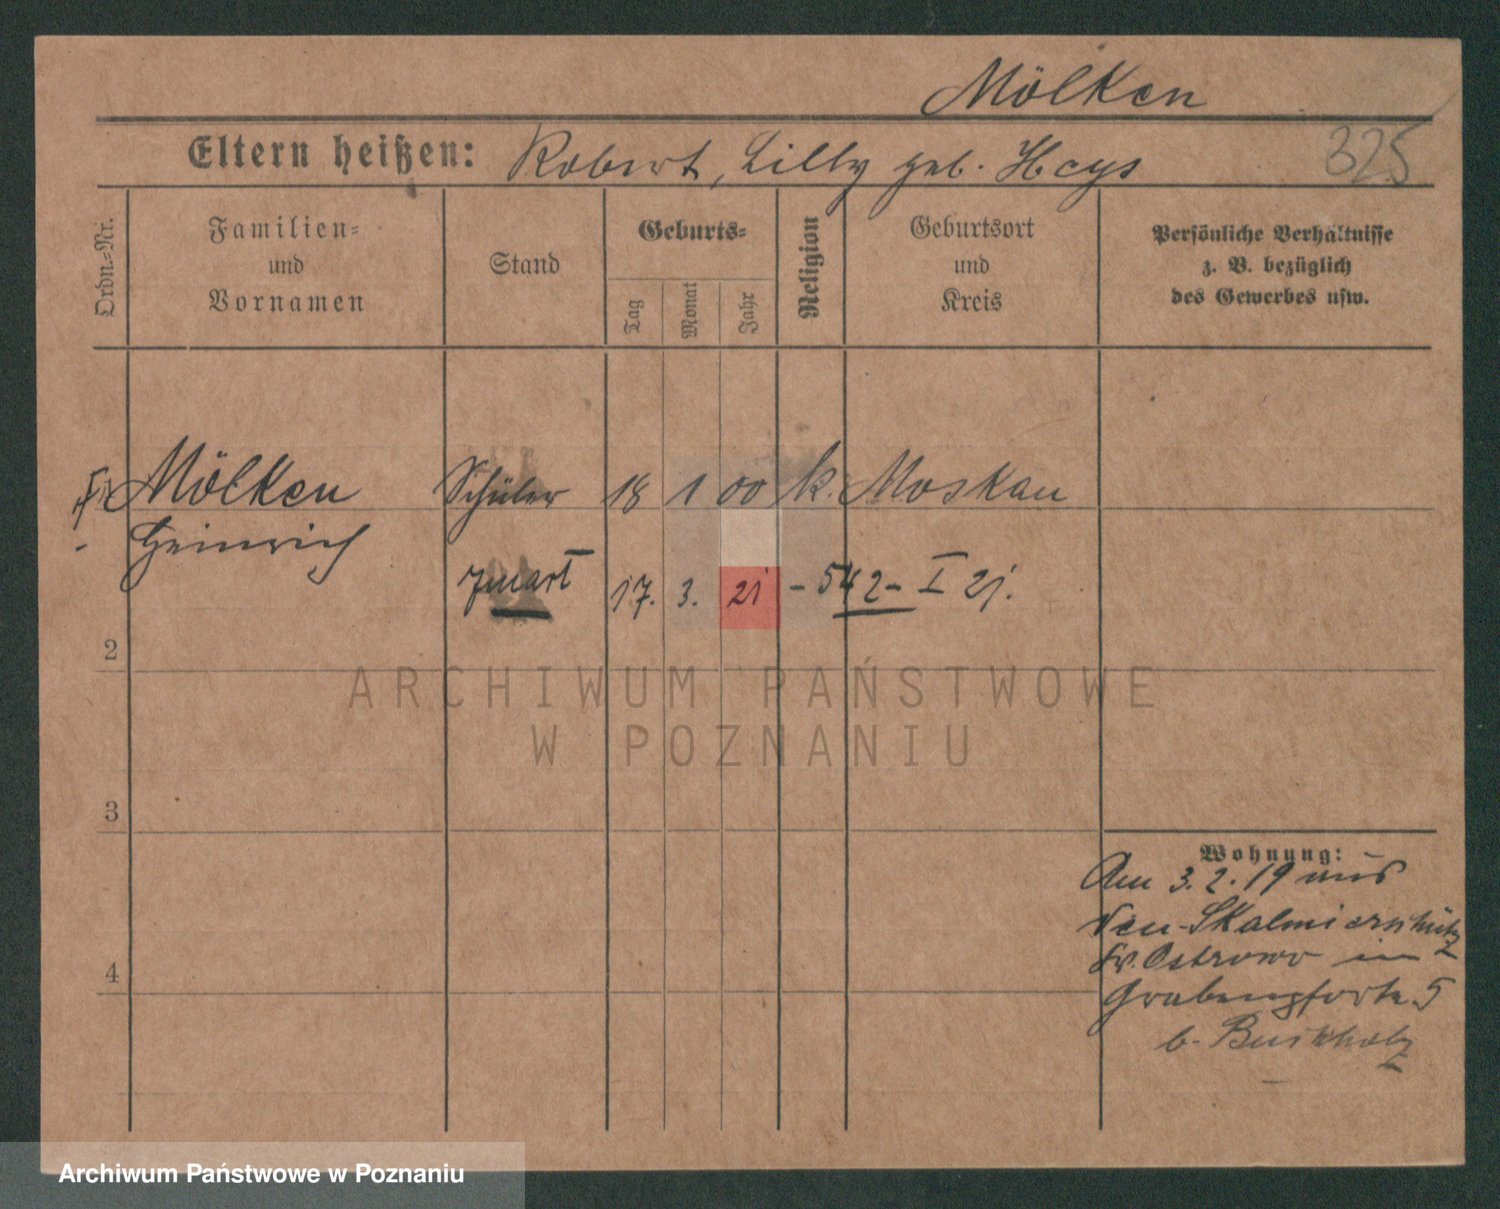 Mölken
Eltern heißen: Robert, Lilly geb. Heys
325
Ordn.-Nr.
Familien-
und
Vornamen
Stand
Geburts-
Tag
Monat
Jahr
Religion
Geburtsort
und
Kreis
Persönliche Verhältnisse
z. B. bezüglich
des Gewerbes usw.
Mölken Schüler 18 1 00 k. Moskau
Heinrich
17. 3. 21 - 542 - I 21.
2
3
4
Wohnung:
Am 3.2.19 aus
Neu-Skalmierschütz
Kr. Ostrowo in
Grabenpforte 5
b. Buchholz
ARCHIWUM PAŃSTWOWE
W POZNANIU
Archiwum Państwowe w Poznaniu